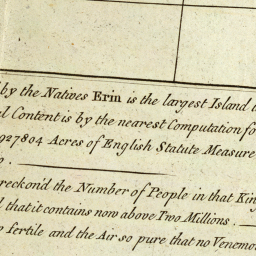 by the Natives Erin is the largest Island
Content is by the nearest Computation
927804 Acres of English Statute Measure
reckon'd the Number of People in that
that it contains now above Two Millions.
fertile and the Air so pure that no